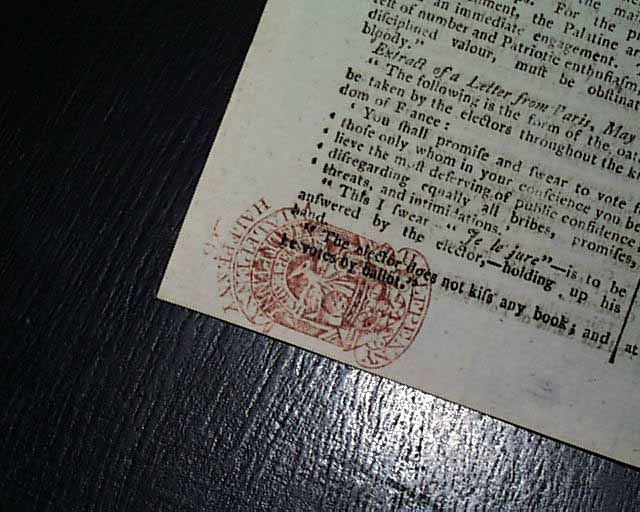 the mai
ument, For the p
an immediate engagement.
est of number and Patriotic enthuſiaſm,
diſciplined valour, muſt be obſtina
bloody."
Extract of a Letter from Paris, May
" The following is the form of the oat
be taken by the electors throughout the ki
dom of France:
' You ſhall promiſe and ſwear to vote f
' thoſe only whom in your conſcience you be
' lieve the moſt deſerving of public confidence,
' diſregarding equally all bribes, promiſes,
' threats, and intimidations.'
" This I ſwear " Je le jure"—is to be
anſwered by the elector,—holding up his
hand.
" The elector does not kiſs any book; and, at
he votes by ballot."
HALFPENNY